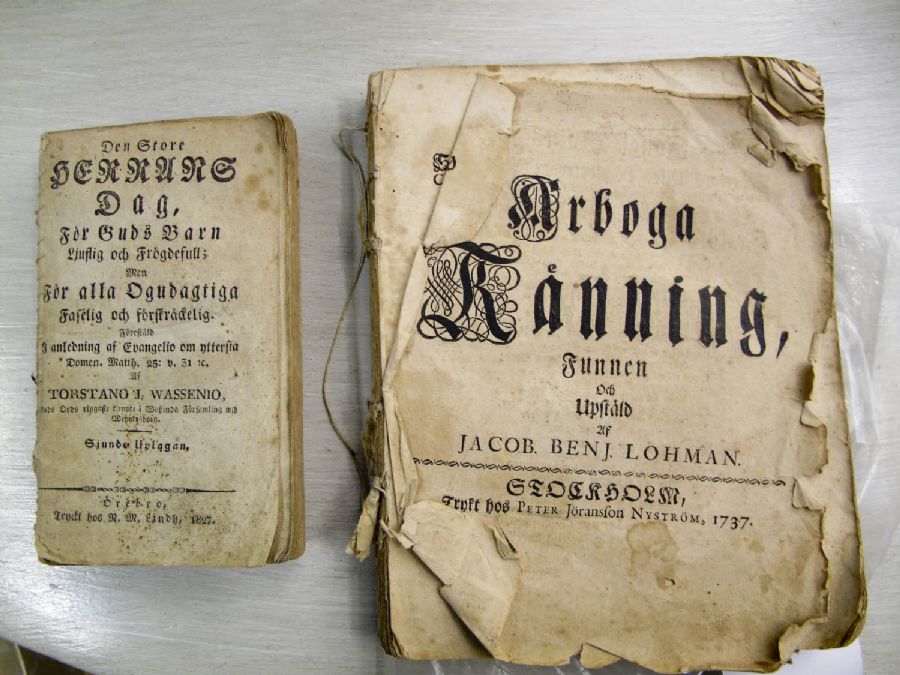 Den Store
HERRANS
Dag,
För Guds Barn
Ljuflig och Frögdefull;
Men
För alla Ogudagtiga
Faselig och förskräckelig.
Förestäld
I anledning af Evangelio om yttersta
Domen. Matth. 25: v. 31 ꝛc.
Af
TORSTANO J. WASSENIO,
Guds Ords i Församling wid
Sjunde Uplagan.
Örebro,
Tryckt hos N. M. Lindh, 1827.
Arboga
Kånning,
Funnen
Och
Upståld
Af
JACOB. BENJ. LOHMAN.
STOCKHOLM,
Trykt hos PETER Jöransson NYSTRÖM, 1737.